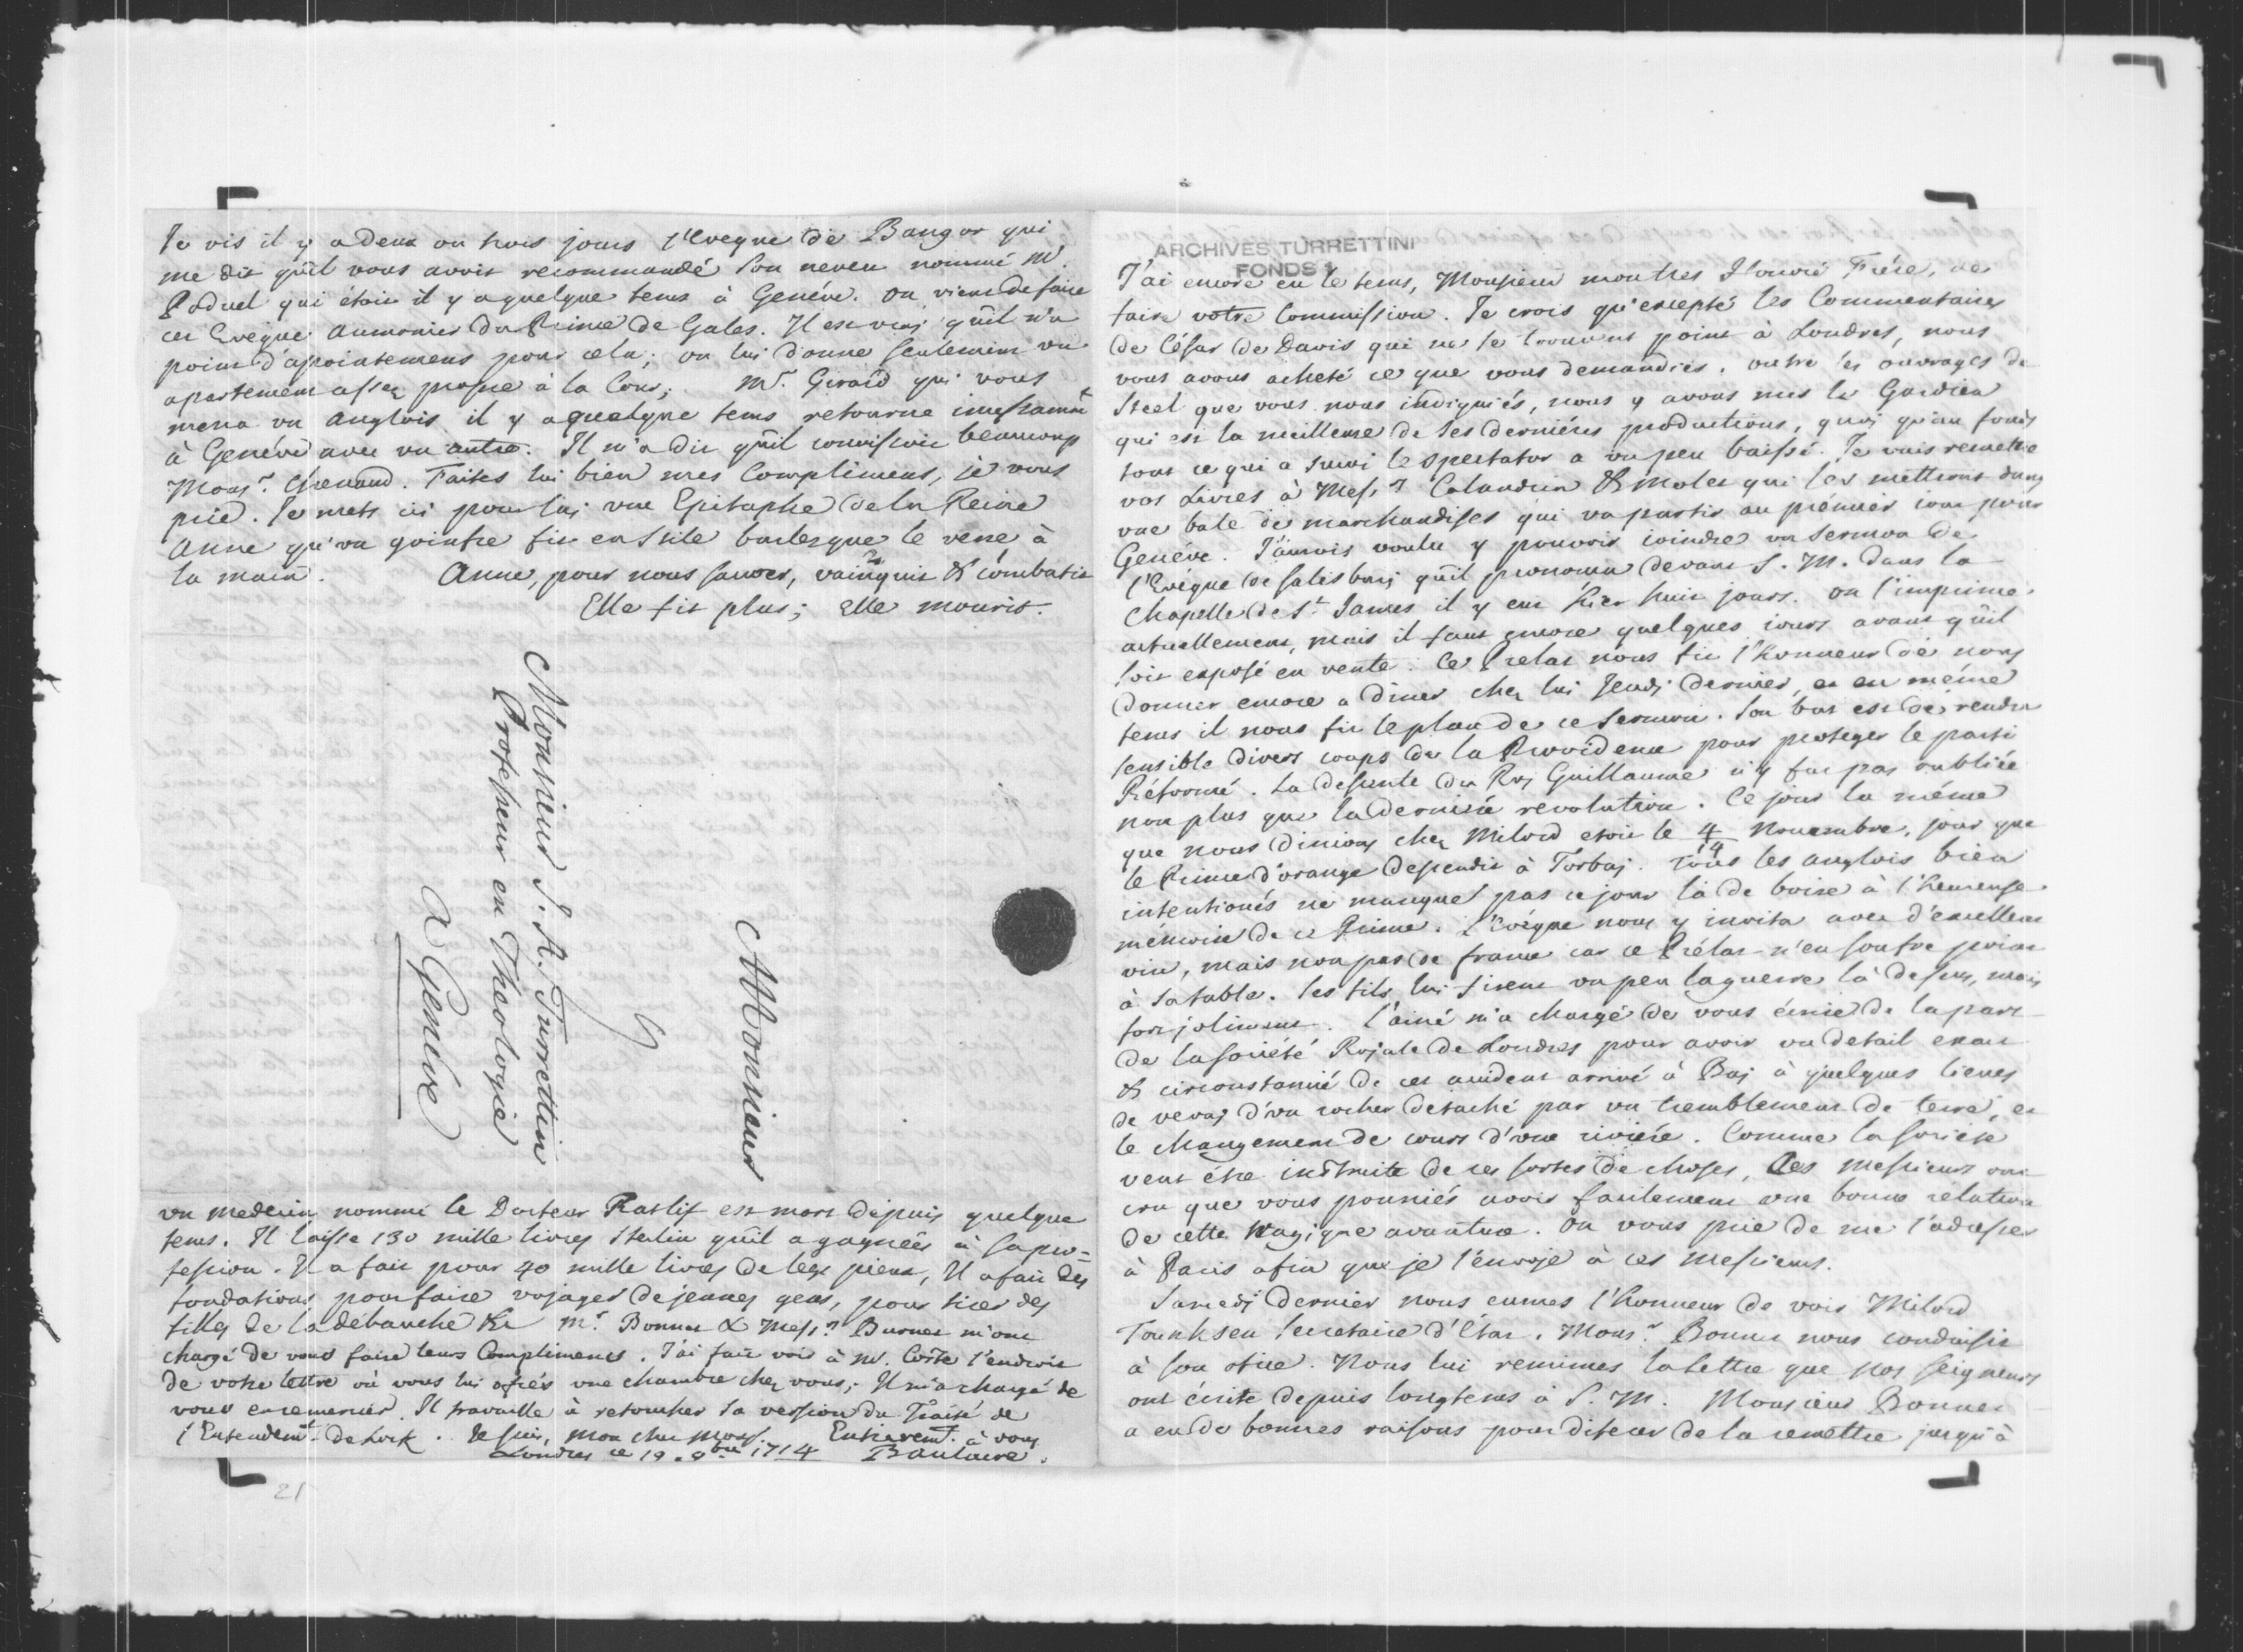 Je vis il y a deux ou trois jours l'Eveque de Bangor qui
me dit qu'il vous avoit recommandé son neveu nommé Mr.
qui étoit il y a quelque tems à Genéve. On vient de faire
cet Evêque Aumonier du Prince de Gales. Il est vrai qu'il n'a
point d'apointemens pour cela; on lui donne seulement un
apartement assez propre à la Cour. Mr. Girard qui vous
mena un Anglois il y a quelque tems retourne incessamt
à Genéve avec un autre. Il m'a dit qu'il connoissoit beaucoup
Monsr. Chenaud. Faites lui bien mes Complimens, je vous
prie. Je mets ici pour lui une Epitaphe de la Reine
Anne qu'un goinfre fit en stile burlesque le verre à
la main. Anne, pour nous sauver, vainquit & combatit
Elle fit plus; Elle mourit.
Monsieur
Monsieur J. A. Turrettin
Professeur en Théologie
A Genéve
un medecin nommé le Docteur Ratlif est mort depuis quelque
tems. Il laisse 130 mille livres sterlin qu'il a gagnées à sa pro-
fession. Il a fait pour 40 mille livres de legs pieux, Il a fait des
fondations pour faire voyager de jeunes gens, pour tirer des
filles de la débauche &c Mr. Bonnet & Messrs Burnet m'ont
chargé de vous faire leurs Complimens. J'ai fait voir à Mr. Coste l'endroit
de votre lettre où vous lui ofrés une chambre chez vous; Il m'a chargé de
vous en remercier. Il travaille à retoucher sa version du Traité de
l'Entendemt. de Lock. Je suis, mon cher Monsr. Entieremt. à vous
Londres ce 19. 9bre 1714 Baulacre.
ARCHIVES TURRETTINI
FONDS 1
J'ai encore eu le tems, Monsieur mon tres Honoré Frére, de
faire votre Commission. Je crois qu'excepté les Commentaires
de César de Davis qui ne se trouvent point à Londres, nous
vous avons acheté ce que vous demandiés. Outre les ouvrages de
Steel que vous nous indiquiés, nous y avons mis le Gardien
qui est la meilleure de ses derniéres productions, quoi qu'au fonds
tout ce qui a suivi le Spectator a un peu baissé. Je vais remettre
vos Livres à Messrs Calandrin & Molet qui les mettront dans
une bale de marchandises qui va partir au prémier jour pour
Genéve. J'aurois voulu y pouvoir joindre un Sermon de
l'Evêque de Salisburi qu'il prononca devant S. M. dans la
Chapelle de St. James il y eut hier huit jours. On l'imprime
actuellement, mais il faut encore quelques jours avant qu'il
soit exposé en vente. Ce Prelat nous fit l'honneur de nous
donner encore a diner chez lui Jeudi dernier, et en même
tems il nous fit le plan de ce Sermon. Son but est de rendre
sensible divers coups de la Providence pour proteger le parti
Réformé. La descente du Roi Guillaume n'y fut pas oubliée
non plus que la derniére revolution. Ce jour la même
que nous dinions chez Milord etoit le 4/14 Novembre, jour que
le Prince d'orange descendit à Torbay. Tous les Anglois bien
intentionés ne manquet pas ce jour là de boire à l'heureuse
mémoire de ce Prince. L'Evêque nous y invita avec d'excellent
vin, mais non pas de france car ce Prélat n'en soufre point
à sa table. Ses fils lui firent un peu la guerre là dessus, mais
fort joliment. L'ainé m'a chargé de vous écrire de la part
de la Société Royale de Londres pour avoir un detail exact
& circonstantié de cet accident arrivé à Bay à quelques lieues
de Vevay d'un rocher detaché par un tremblement de terre, et
le changement de cours d'une riviére. Comme la Societé
veut être instruite de ces sortes de choses, Ces Messieurs ont
cru que vous pourriés avoir facilement une bonne rélation
de cette tragique avanture. On vous prie de me l'adresser
à Paris afin que je l'envoye à ces Messieurs.
Samedi dernier nous eumes l'honneur de voir Milord
Tounksen Secretaire d'Etat. Monsr. Bonnet nous conduisit
à son ofice. Nous lui remimes la lettre que Nos Seigneurs
ont écrite depuis longtems à S. M. Monsieur Bonnet
a eu de bonnes raisons pour diferer de la remettre jusqu'à
21